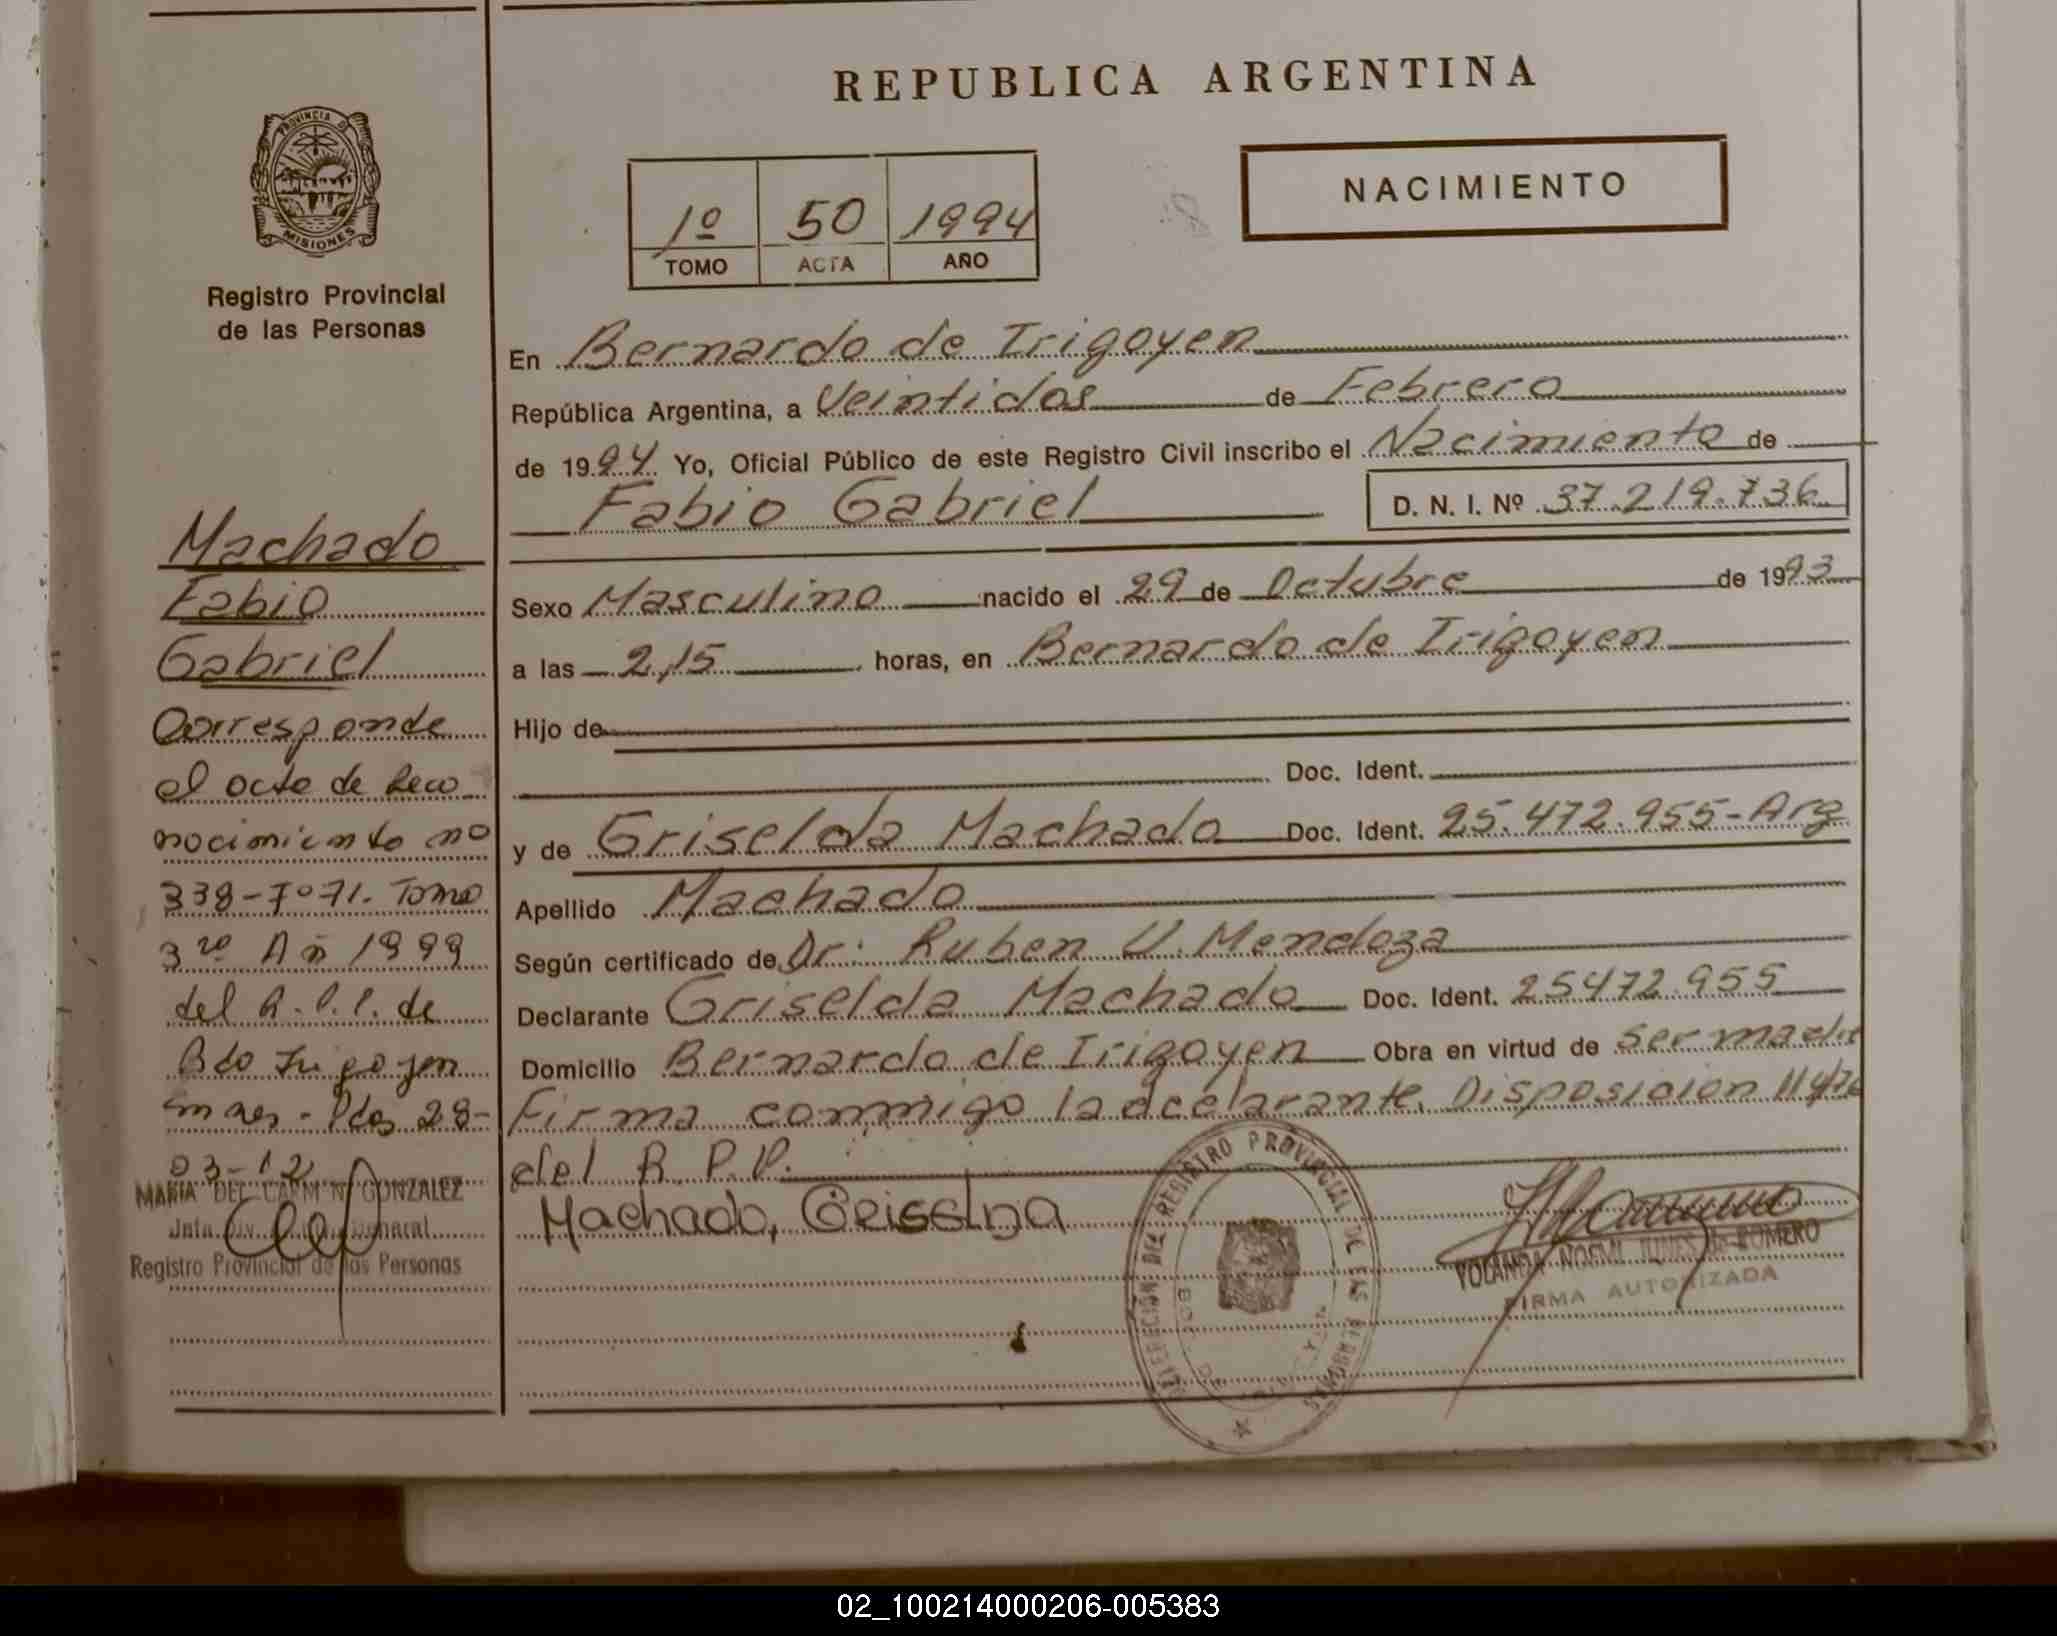 REPUBLICA ARGENTINA
PROVINCIA D
MISIONES
Registro Provincial
de las Personas
NACIMIENTO
1º 50 1994
TOMO ACTA AÑO
En Bernardo de Irigoyen
República Argentina, a Veintidos de Febrero
de 1994 Yo, Oficial Público de este Registro Civil inscribo el Nacimiento de
Fabio Gabriel D. N. I. Nº 37.219.736
Sexo Masculino nacido el 29 de Octubre de 1993
a las 2,15 horas, en Bernardo de Irigoyen
Hijo de
Doc. Ident.
y de Griselda Machado Doc. Ident. 25.472.955-Arg
Apellido Machado
Según certificado de Dr: Ruben U. Mendoza
Declarante Griselda Machado Doc. Ident. 25472.955
Domicilio Bernardo de Irigoyen Obra en virtud de ser madre
Firma conmigo la declarante. Disposicion
del R.P.P.
Machado, Geisselda
YOLANDA NOEMI DE ROMERO
FIRMA AUTORIZADA
DIRECCIÓN DEL REGISTRO PROVINCIAL DE LAS PERSONAS
Machado
Fabio
Gabriel
Corresponde
al acta de Reco
nocimiento nº
338-Fº71. Tomo
3ro Añ 1999
del R.P.P. de
Bdo Irigoyen
Mnes - Pdas 28-
03-12
MARIA DEL CARMEN GONZALEZ
Registro Provincial de las Personas
02_100214000206-005383